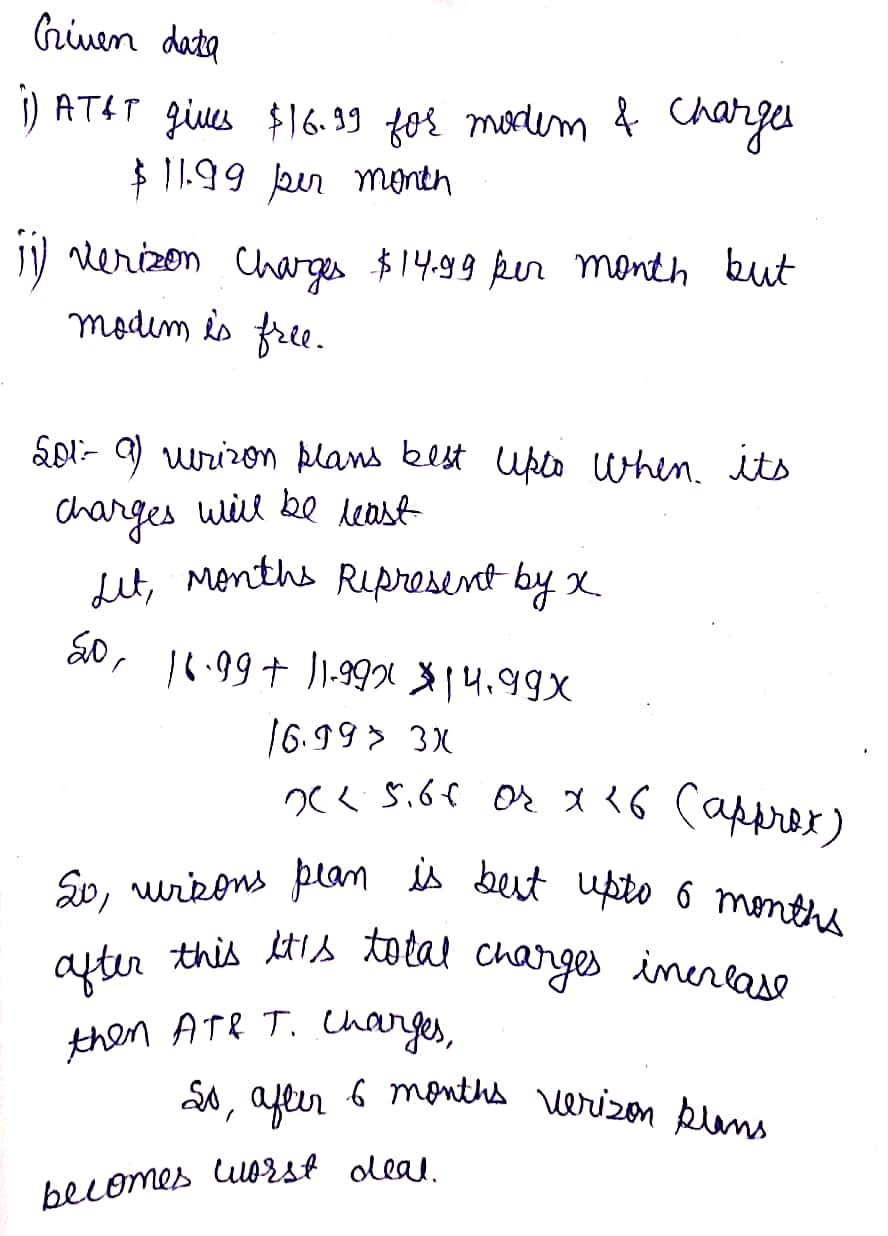 Given data
i) AT&T gives $16.99 for modem & Charges
$11.99 per month
ii) verizon Charges $14.99 per month but
modem is free.
Sol:- a) verizon plans best upto when. its
charges will be least
Let, months Represent by x
So, 16.99 + 11.99x > 14.99x
16.99 > 3x
x < 5.66 or x < 6 (approx)
So, verizons plan is best upto 6 months
after this it's total charges increase
then AT&T. Charges,
So, after 6 months verizon plans
becomes worst deal.